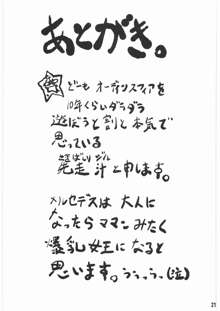 あとがき。
どーも オーディンスフィアを
10年くらいダラダラ
遊ぼうと割と本気で
思っている
発走 汁と申します。
メルセデスは大人に
なったらママンみたく
爆乳女王になると
思います。うぅっうっ(泣)
21